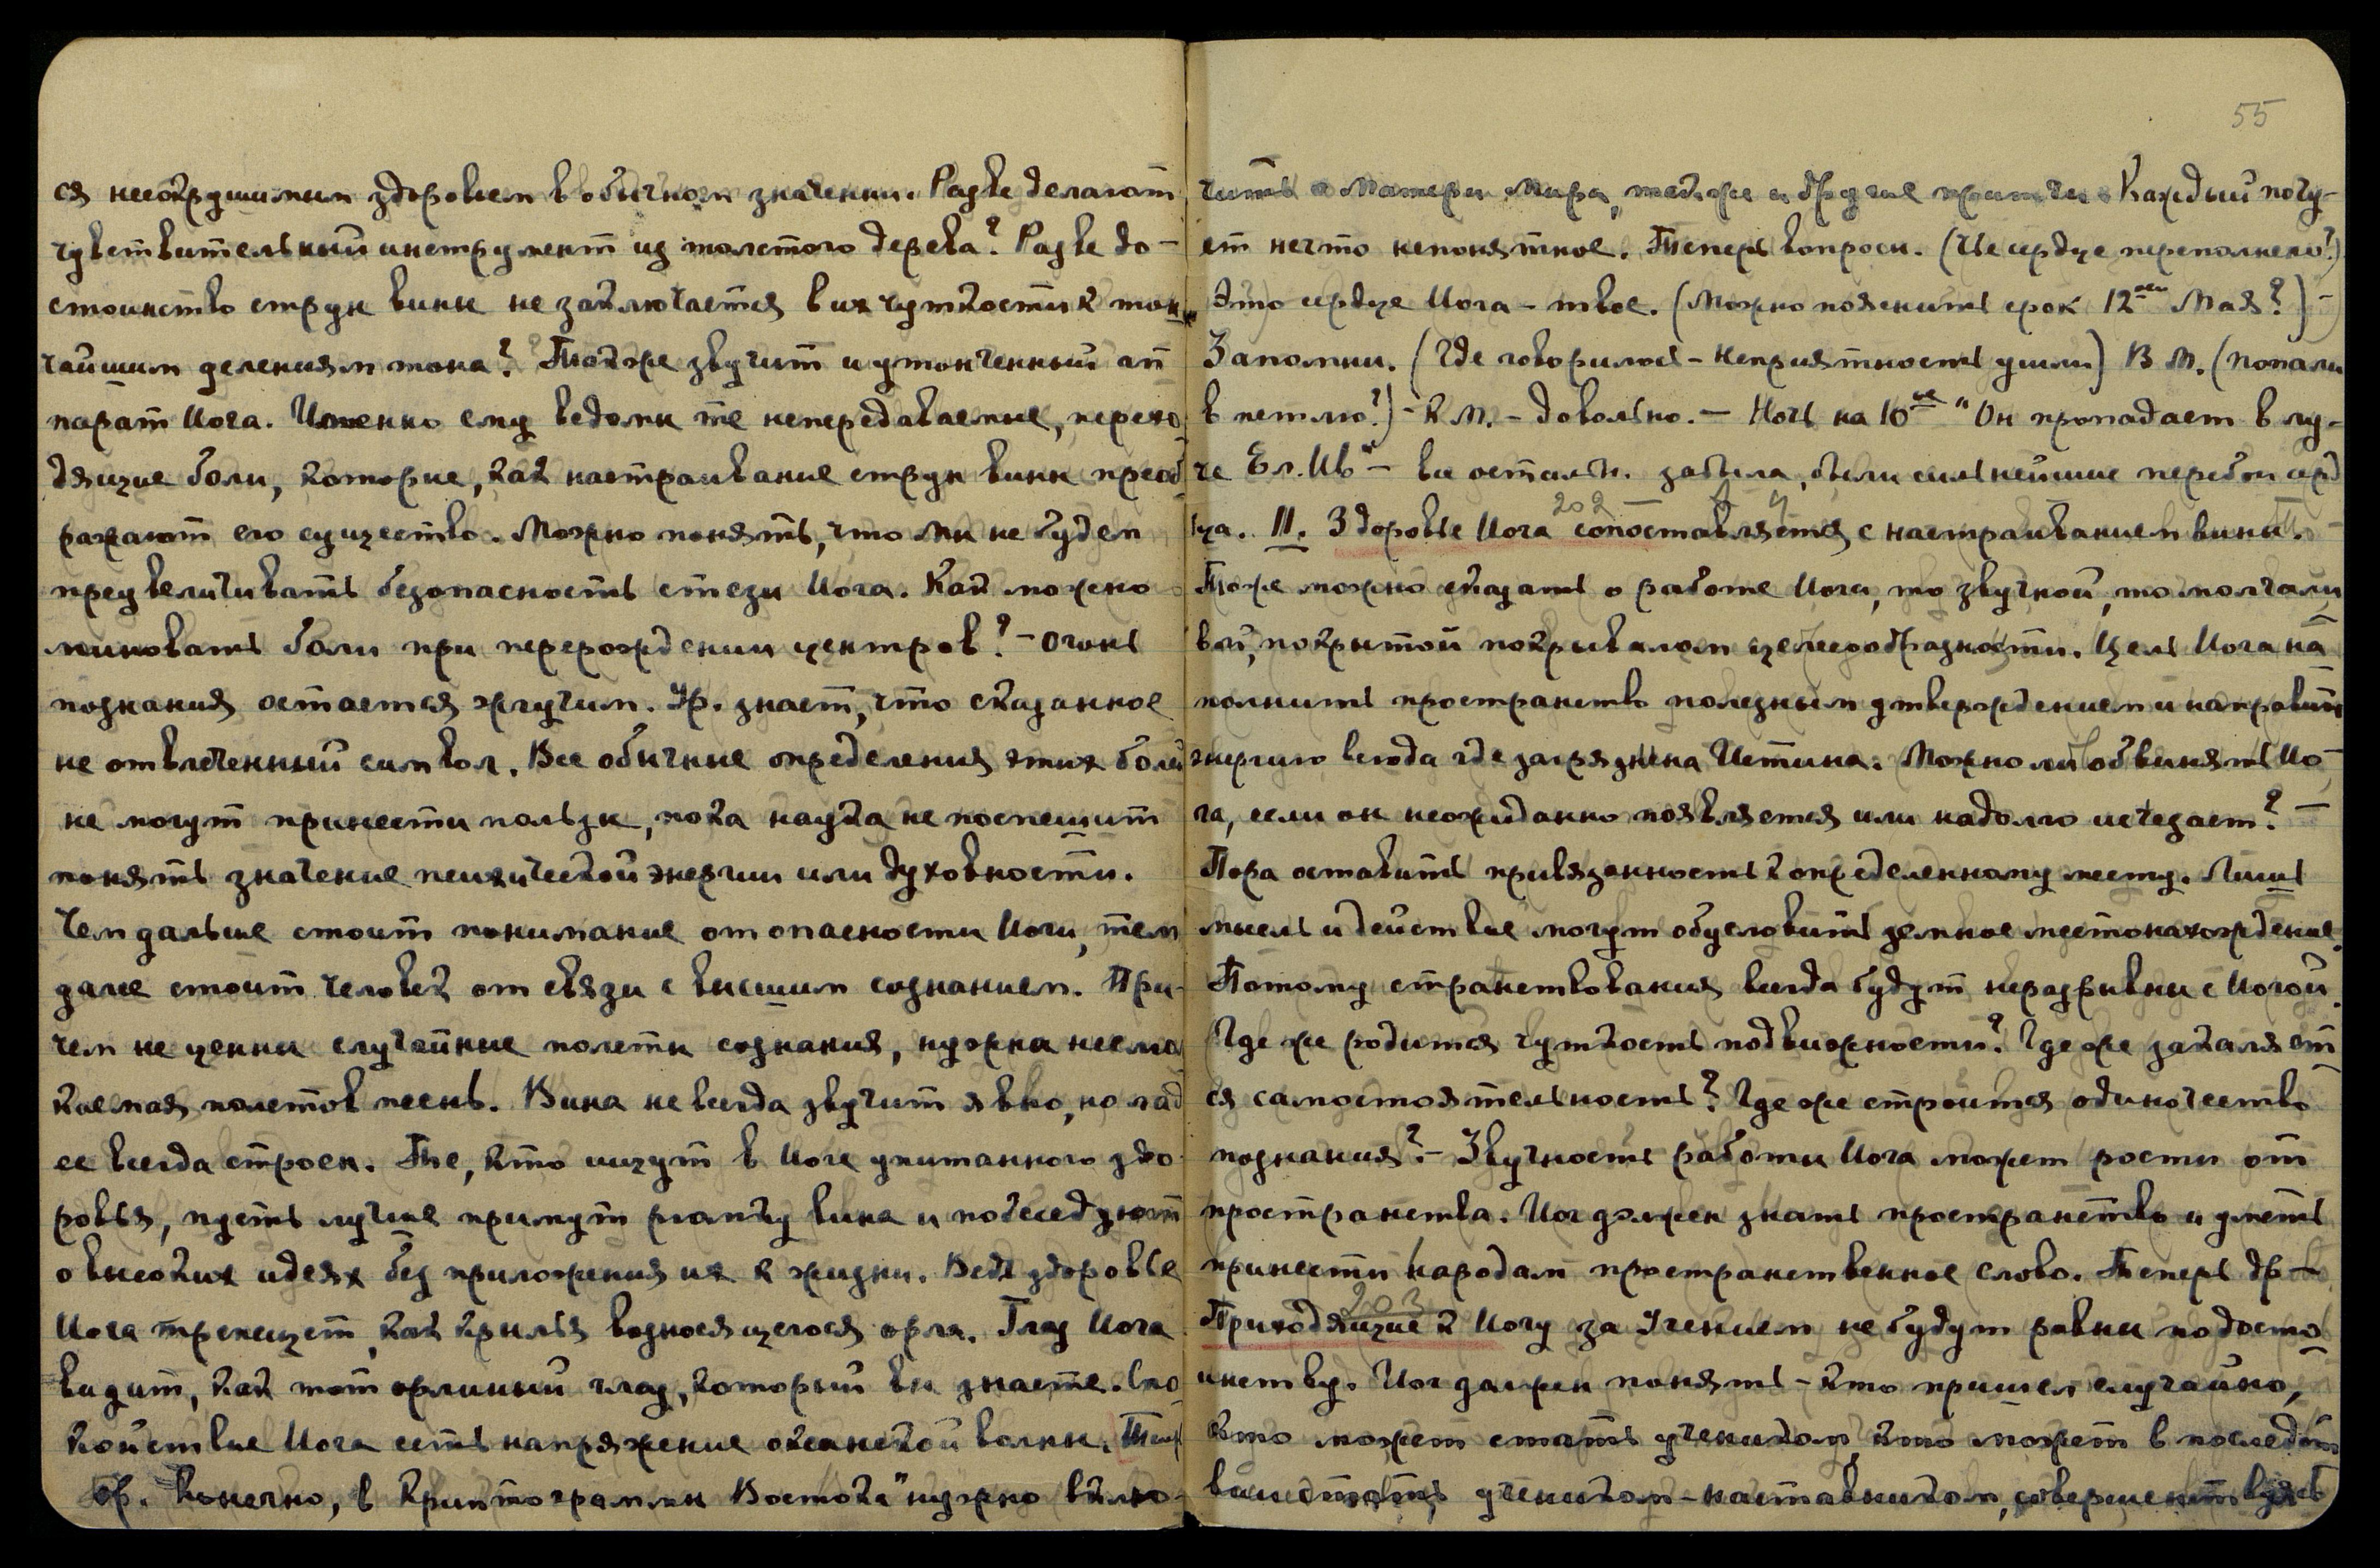 ся несокрушимым здоровьем в обычном значении. Разве делают
чувствительный инструмент из толстого дерева? Разве до-
стоинство струн вины не заключается в их чуткости к тон
чайшим делениям тона? Также звучит и утонченный ап
парат Йога. Именно ему ведомы те непередаваемые, перехо
дящие боли, которые, как настраивание струн вины преоб
ражают его существо. Можно понять, что мы не будем
предвеличивать безопасность стези Йога. Как можно
миновать боли при перерождении центров? - Огонь
познания остается жгучим. Ур. знает, что сказанное
не отвлеченный символ. Все обычные определения этих болей
не могут принести пользы, пока наука не поспешит
понять значение психической энергии или духовности.
Чем дальше стоит понимание от опасности Йоги, тем
дале стоит человек от связи с высшим сознанием. При-
чем не ценны случайные полеты сознания, нужна несмол
каемая полетов песнь. Вина не всегда звучит явно, но лад
ее всегда строен. Те, кто ищут в Йоге упитанного здо-
ровья, пусть лучше примут рюмку вина и побеседуют
о высоких идеях без приложения их к жизни. Ведь здоровье
Йога трепещет, как крылья возносящегося орла. Глаз Йога
видит, как тот орлиный глаз, который вы знаете. Спо
койствие Йога есть напряжение океанской волны.
др. Конечно, в Криптограммы Востока" нужно вклю-
55
чить о Матери Мира, также и другие притчи. Каждый почу-
ет нечто непонятное. Теперь вопросы. (Чье сердце переполнено?)
Это сердце Йога - твое. (Можно пояснить срок 12ое Мая?) -
Запомни. (Где говорилось - неприятность ушли) В М. (попали
в петлю?) - К М. - Довольно. - Ночь на 10ое "Он пропадает в лу-
че Ел. Ив" - все остальн. забыла, были сильнейшие перебои серд
ца. 11. Здоровье Йога сопоставляется с настраиванием вины.
202
Тоже можно сказать о работе Йоги, то звучной, то молчали
вой, покрытой покрывалом целесообразности. Цель Йога на
полнить пространство полезным утверждением и направить
энергию всюда где загрязнена Истина. Можно ли обвинять Йо-
га, если он неожиданно появляется или надолго исчезает? -
Пора оставить привязанность к определенному месту. Лишь
мысль и действие могут обусловить земное местонахождение.
Потому странствования всегда будут неразрывны с Йогой.
Где же родится чуткость подвижности? Где же закаляет
ся самостоятельность? Где же строится одиночество
познания? - Звучность работы Йога может рости от
пространства. Йог должен знать пространство и уметь
принести народам пространственное слово. Теперь др -
203
Приходящие к Йогу за Учением не будут равны по досто
инству. Йог должен понять - кто пришел случайно,
кто может стать учеником, кто может в последст
вии стать учеником-наставником, совершенствуясь